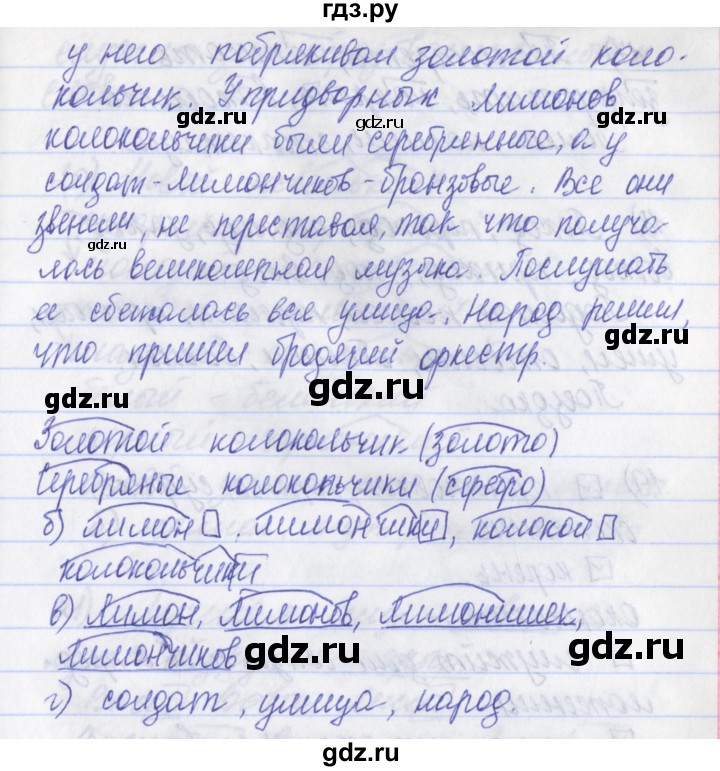 гдз.ру
у него побрякивал золотой коло-
кольчик. У придворных Лимонов
колокольчики были серебрянные, а у
солдат-Лимончиков-бронзовые. Все они
звенели, не переставая, так что получа-
лась великолепная музыка. Послушать
ее сбежалась вся улица. Народ решил,
что пришел бродячий оркестр.
Золотой колокольчик (золото)
Серебряные колокольчики (серебро)
б) лимон, лимончики, колокол
колокольчики
в) Лимон, Лимонов, Лимонишек,
Лимончиков
г) солдат, улица, народ
gdz.ru
gdz.ru
gdz.ru
gdz.ru
gdz.ru
gdz.ru
gdz.ru
gdz.ru
gdz.ru
gdz.ru
gdz.ru
gdz.ru